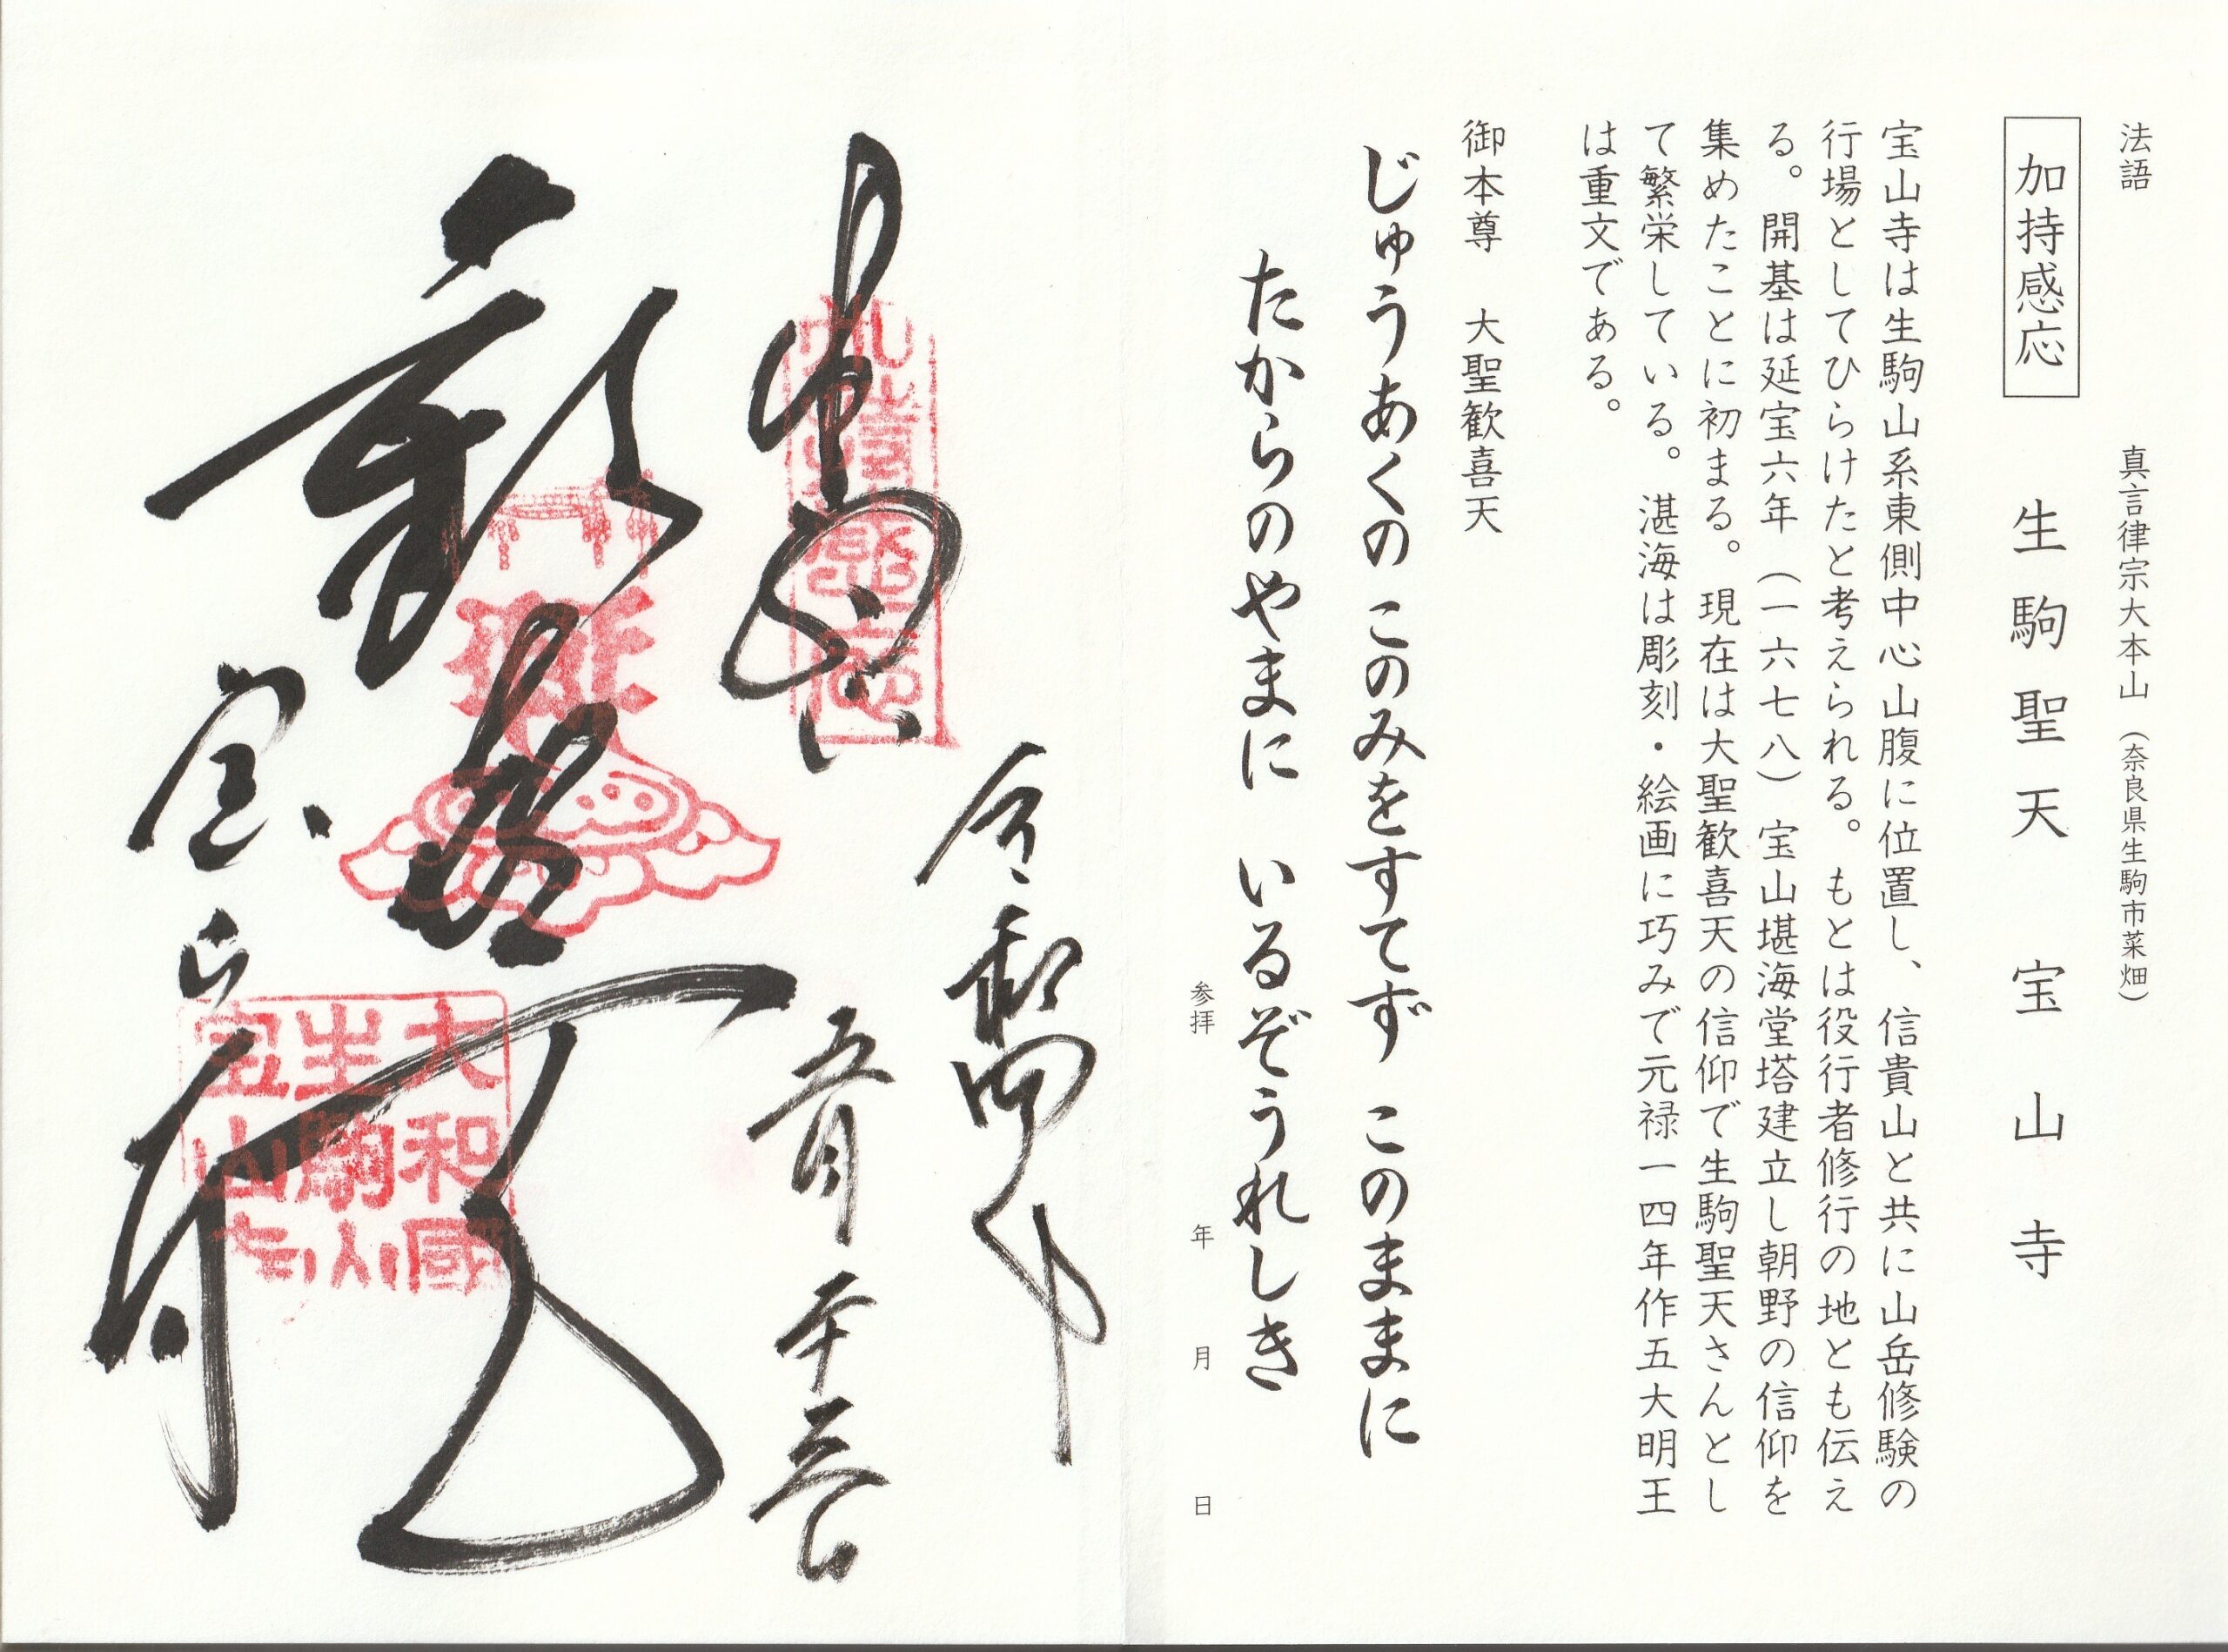 法語
真言律宗大本山（奈良県生駒市菜畑）
加持感応
生駒聖天 宝山寺
宝山寺は生駒山系東側中心山腹に位置し、信貴山と共に山岳修験の
行場としてひらけたと考えられる。もとは役行者修行の地とも伝え
る。開基は延宝六年（一六七八）宝山堪海堂塔建立し朝野の信仰を
集めたことに初まる。現在は大聖歓喜天の信仰で生駒聖天さんとし
て繁栄している。湛海は彫刻・絵画に巧みで元禄一四年作五大明王
は重文である。
御本尊 大聖歓喜天
じゅうあくの このみをすてず このままに
たからのやまに いるぞうれしき
参拝 年 月 日
令和四年
五月十三日
歓喜天
宝山寺
大和國
生駒山
宝山寺